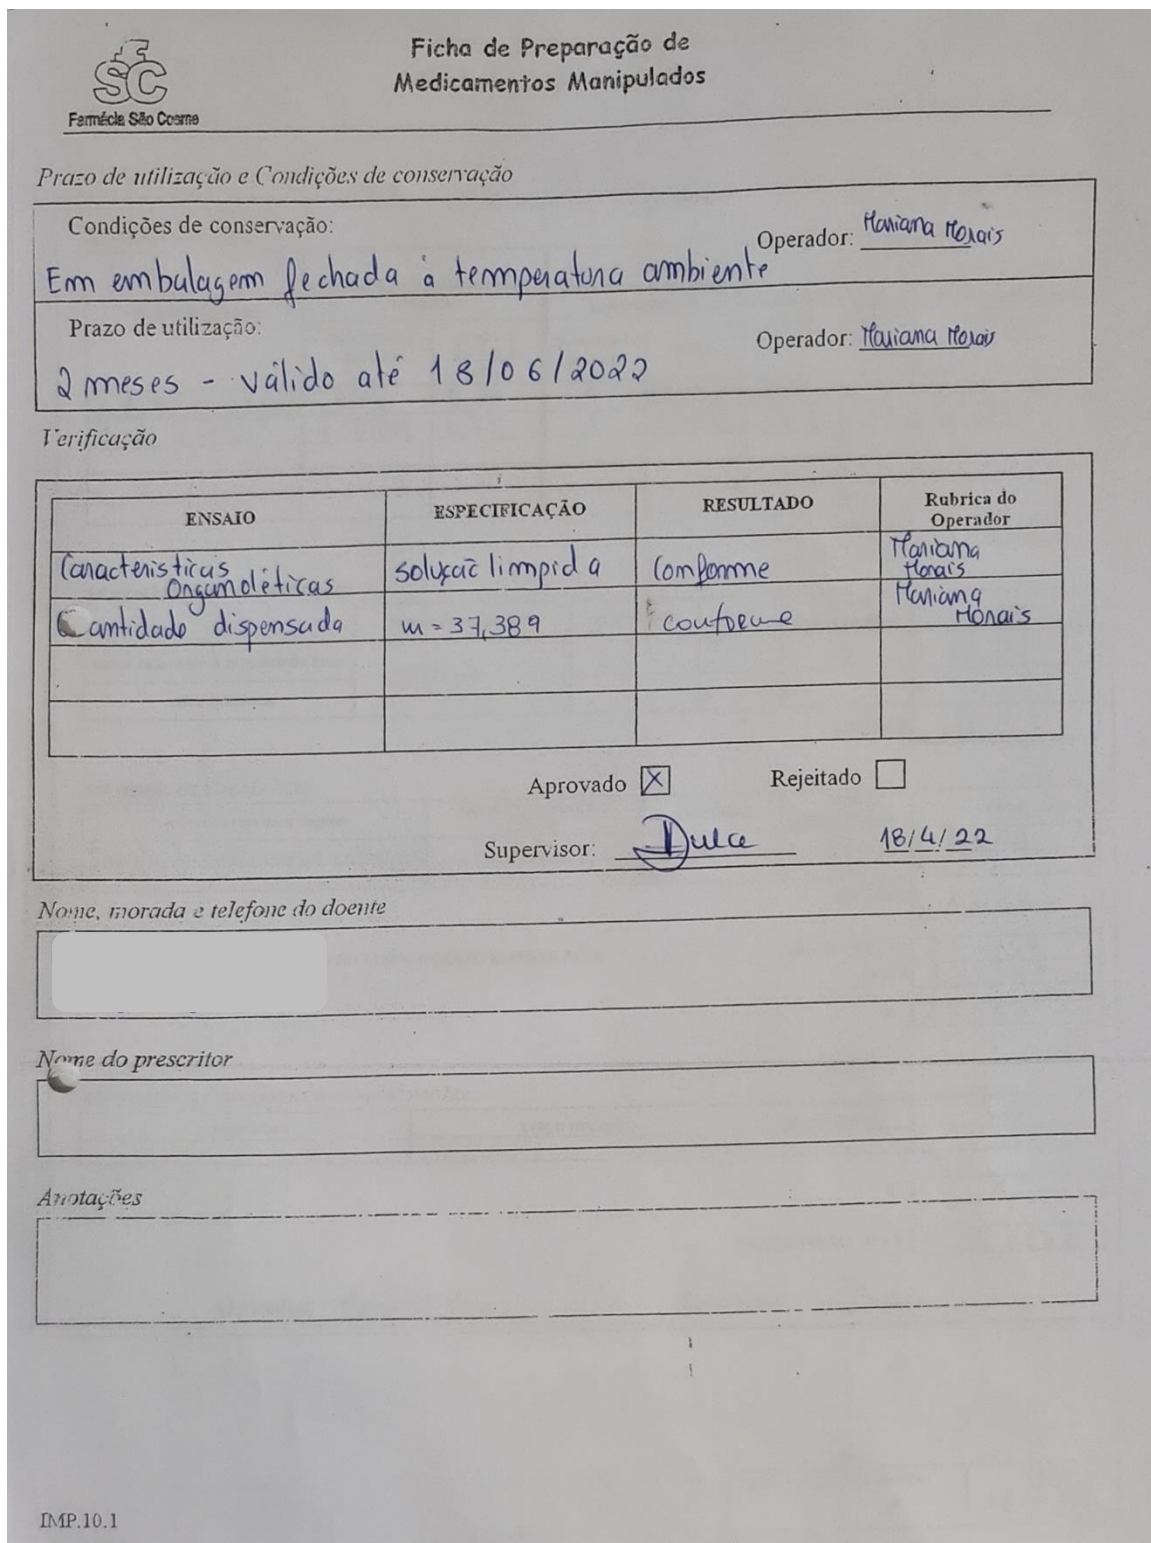 SC
Farmácia São Cosme
Ficha de Preparação de
Medicamentos Manipulados
Prazo de utilização e Condições de conservação
Condições de conservação:
Operador: Mariana Morais
Em embalagem fechada à temperatura ambiente
Prazo de utilização:
Operador: Mariana Morais
2 meses - válido até 18/06/2022
Verificação
ENSAIO ESPECIFICAÇÃO RESULTADO Rubrica do
Operador
Características
Organoléticas solução límpida Conforme Mariana
Morais
Quantidade dispensada m = 37,38g conforme Mariana
Morais
Aprovado X Rejeitado
Supervisor: Dulce 18/4/22
Nome, morada e telefone do doente
Nome do prescritor
Anotações
IMP.10.1